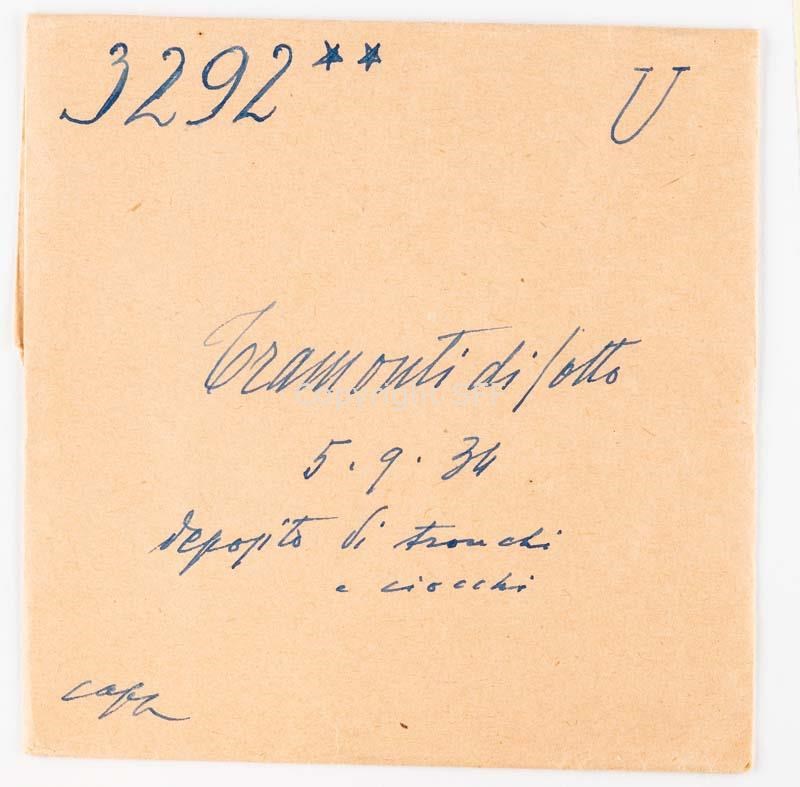 3292** U
Tramonti di sotto
5.9.34
deposito di tronchi
e ciocchi